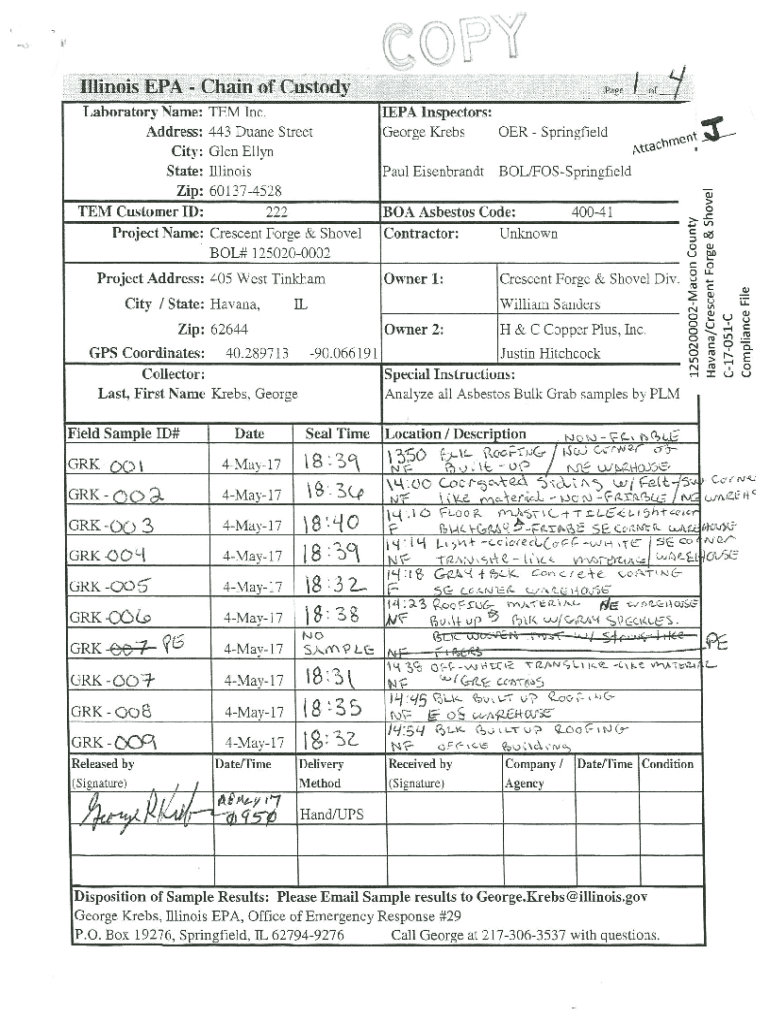 COPY
Illinois EPA - Chain of Custody Page 1 of 4
Attachment J
Laboratory Name: TEM Inc. IEPA Inspectors:
Address: 443 Duane Street George Krebs OER - Springfield
City: Glen Ellyn
State: Illinois Paul Eisenbrandt BOL/FOS-Springfield
Zip: 60137-4528
TEM Customer ID: 222 BOA Asbestos Code: 400-41
Project Name: Crescent Forge & Shovel Contractor: Unknown
BOL# 125020-0002
Project Address: 405 West Tinkham Owner 1: Crescent Forge & Shovel Div.
City / State: Havana, IL William Sanders
Zip: 62644 Owner 2: H & C Copper Plus, Inc.
GPS Coordinates: 40.289713 -90.066191 Justin Hitchcock
Collector: Special Instructions:
Last, First Name Krebs, George Analyze all Asbestos Bulk Grab samples by PLM
1250200002-Macon County
Havana/Crescent Forge & Shovel
C-17-051-C
Compliance File
Field Sample ID# Date Seal Time Location / Description NON-FRIABLE
GRK 001 4-May-17 18:39 1350 BLK ROOFING / NW CORNER OF
NF Built-UP / NE WAREHOUSE
GRK - 002 4-May-17 18:36 14:00 Coorgated Siding w/ Felt-/SW Corne
NF like material-NON-FRIABLE / NE WAREHS
GRK - 003 4-May-17 18:40 14:10 FLOOR MASTIC + TILE Light color
F BLK+GRAY - FRIABE SE CORNER WAREHOUSE
GRK 004 4-May-17 18:39 14:14 Light-colored (OFF-WHITE / SE CORNER
NF TRANSITE-like MATERIAL / WAREHOUSE
GRK -005 4-May-17 18:32 14:18 GRAY + BLK Concrete COATING
F SE CORNER WAREHOUSE
GRK -006 4-May-17 18:38 14:23 ROOFING MATERIAL NE WAREHOUSE
NF Built up BLK W/GRAY SPECKLES.
GRK 007 PE 4-May-17 NO SAMPLE BLK WOVEN w/ PE
NF - FIBERS
GRK -007 4-May-17 18:31 1438 OFF-WHITE TRANSLIKE-LIKE MATERIAL
NF W/GRE COATING
GRK - 008 4-May-17 18:35 14:45 BLK BUILT UP ROOFING
NF E OS WAREHOUSE
GRK - 009 4-May-17 18:32 14:54 BLK BUILT UP ROOFING
NF OFFICE Building
Released by Date/Time Delivery Received by Company / Date/Time Condition
(Signature) Method (Signature) Agency
George R Krebs 08 May 17 0950 Hand/UPS
Disposition of Sample Results: Please Email Sample results to George.Krebs@illinois.gov
George Krebs, Illinois EPA, Office of Emergency Response #29
P.O. Box 19276, Springfield, IL 62794-9276 Call George at 217-306-3537 with questions.